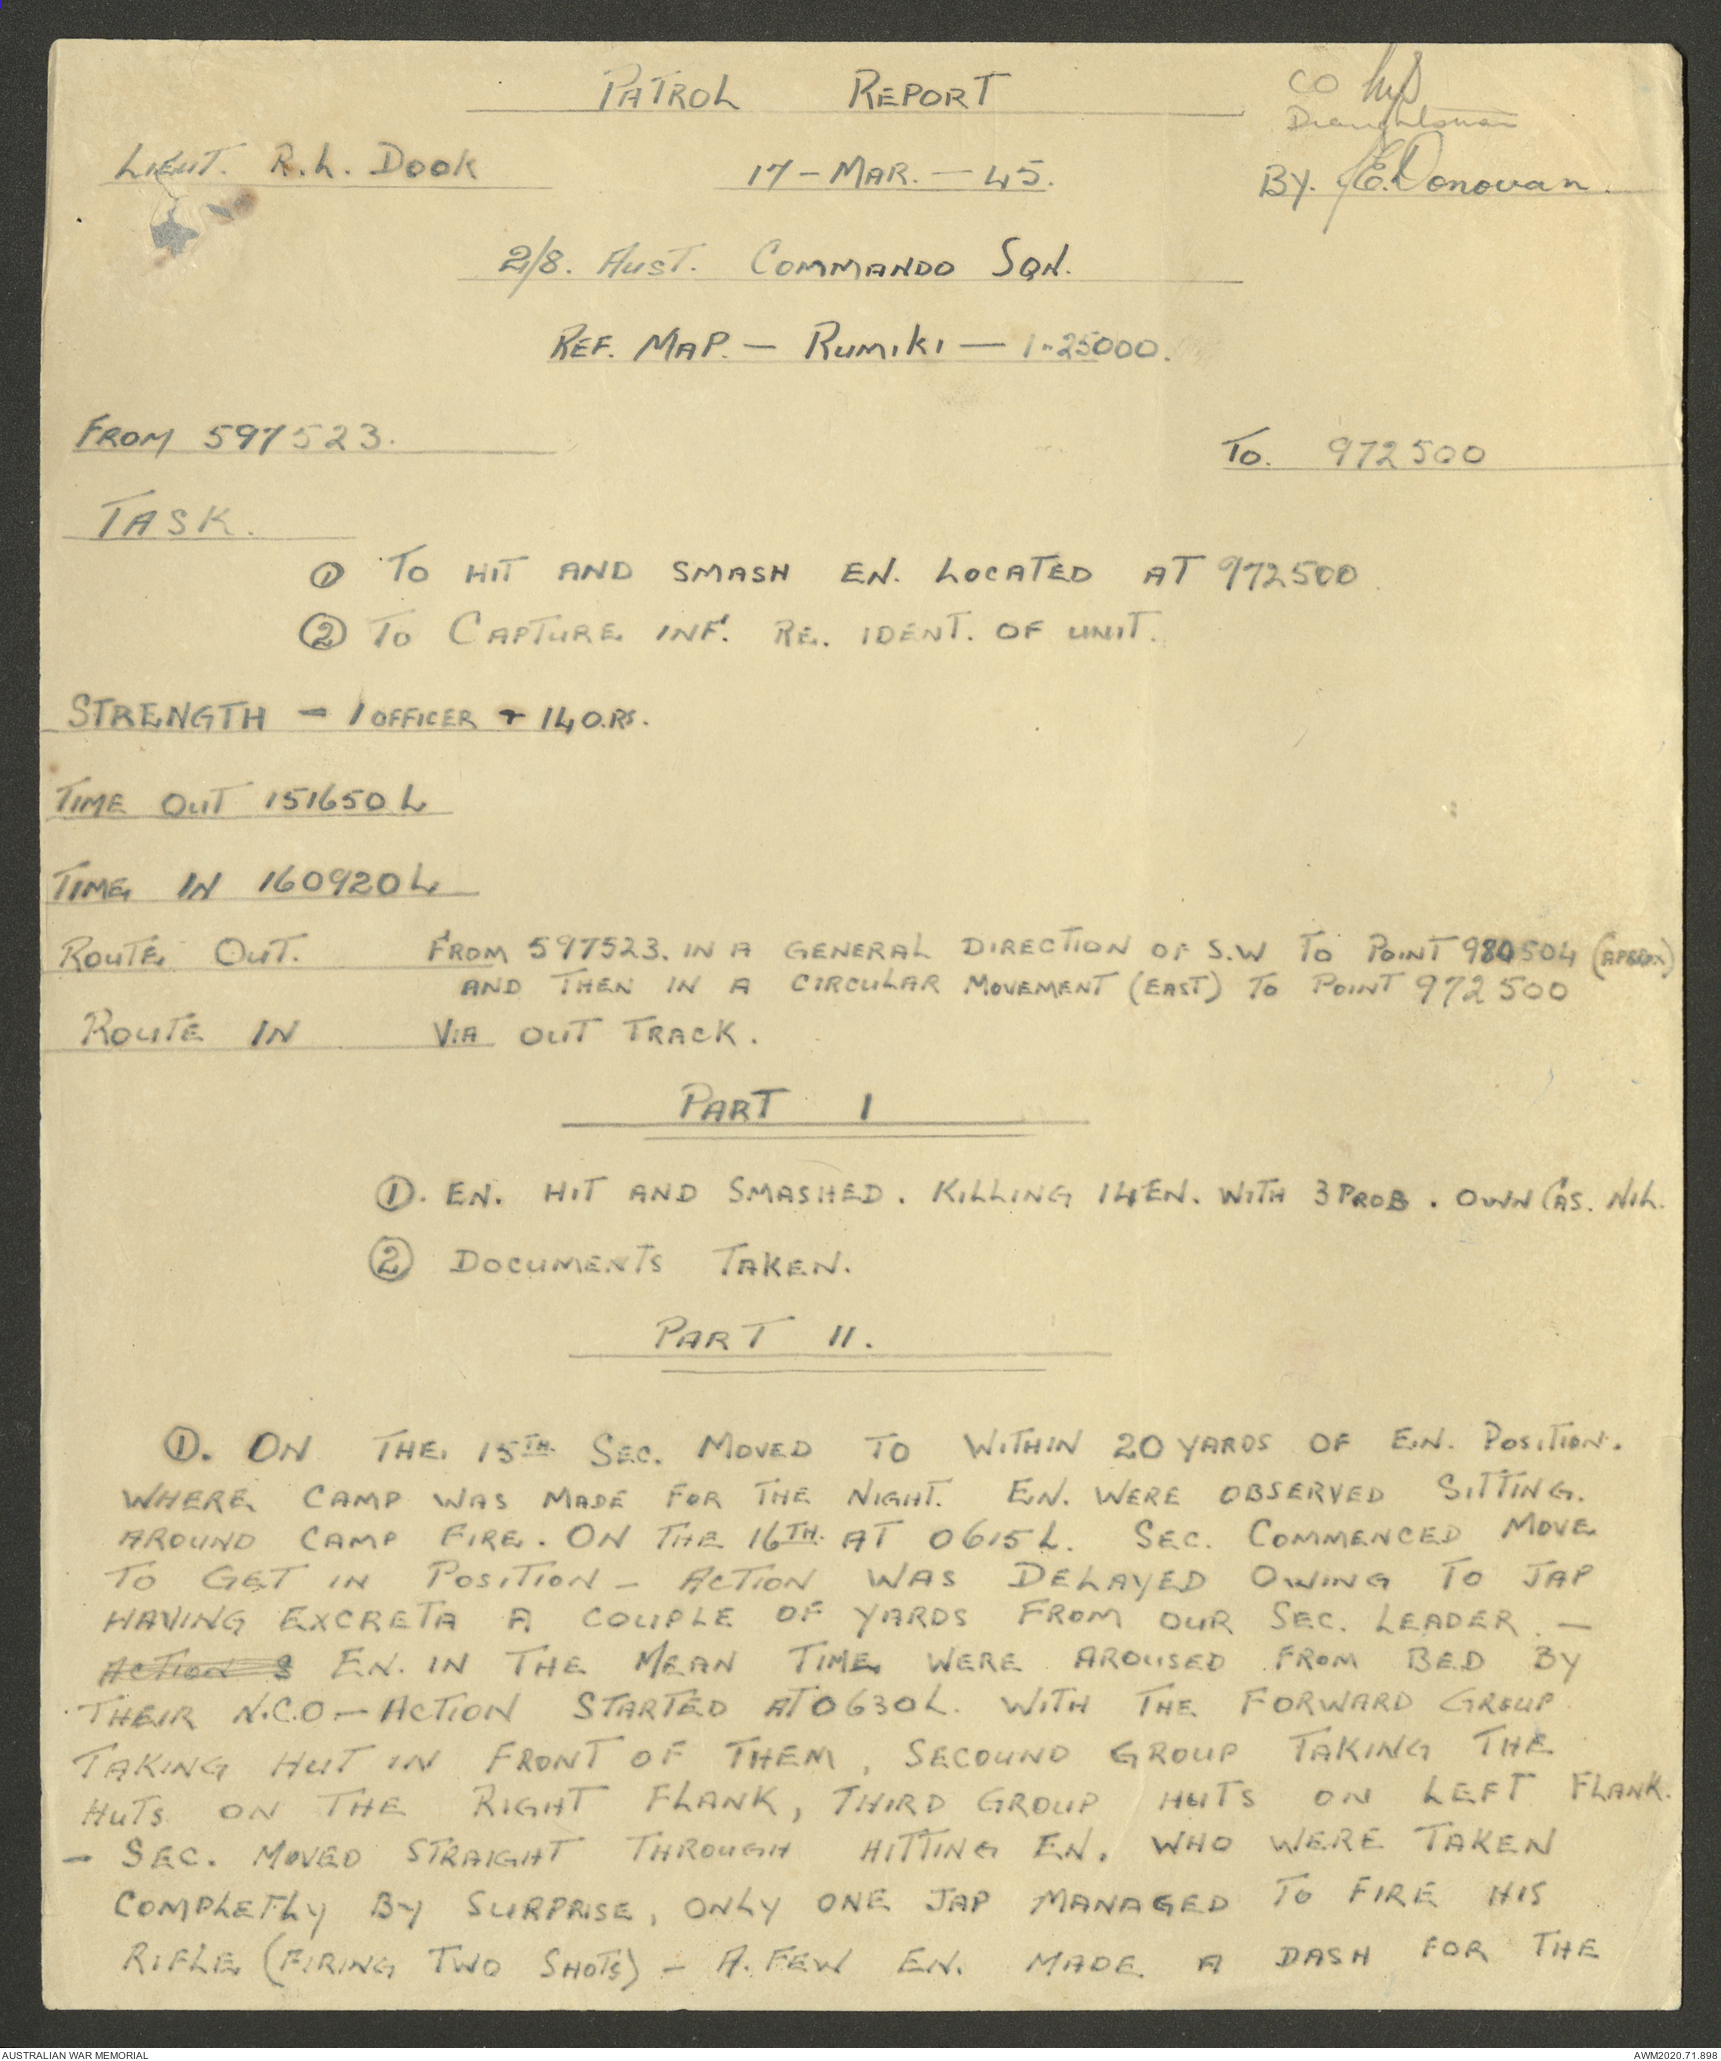 PATROL REPORT
CO
Draughtsman
LIEUT. R.L. DOOK 17-MAR.-45. BY. J.E. Donovan.
2/8. AUST. COMMANDO SQN.
REF. MAP. - RUMIKI - 1-25000.
FROM 597523. TO. 972500
TASK.
① TO HIT AND SMASH EN. LOCATED AT 972500
② TO CAPTURE INF. RE. IDENT. OF UNIT.
STRENGTH - 1 OFFICER + 14 O.RS.
TIME OUT 151650L
TIME IN 160920L
ROUTE OUT. FROM 597523. IN A GENERAL DIRECTION OF S.W TO POINT 980504 (APPROX)
AND THEN IN A CIRCULAR MOVEMENT (EAST) TO POINT 972500
ROUTE IN VIA OUT TRACK.
PART I
①. EN. HIT AND SMASHED. KILLING 14 EN. WITH 3 PROB. OWN CAS. NIL.
② DOCUMENTS TAKEN.
PART II.
①. ON THE 15TH. SEC. MOVED TO WITHIN 20 YARDS OF EN. POSITION.
WHERE CAMP WAS MADE FOR THE NIGHT. EN. WERE OBSERVED SITTING.
AROUND CAMP FIRE. ON THE 16TH. AT 0615L. SEC. COMMENCED MOVE
TO GET IN POSITION - ACTION WAS DELAYED OWING TO JAP
HAVING EXCRETA A COUPLE OF YARDS FROM OUR SEC. LEADER. -
ACTION S EN. IN THE MEAN TIME WERE AROUSED FROM BED BY
THEIR N.C.O - ACTION STARTED AT 0630L. WITH THE FORWARD GROUP
TAKING HUT IN FRONT OF THEM, SECOUND GROUP TAKING THE
HUTS ON THE RIGHT FLANK, THIRD GROUP HUTS ON LEFT FLANK.
- SEC. MOVED STRAIGHT THROUGH HITTING EN. WHO WERE TAKEN
COMPLETLY BY SURPRISE, ONLY ONE JAP MANAGED TO FIRE HIS
RIFLE (FIRING TWO SHOTS) - A. FEW EN. MADE A DASH FOR THE
AUSTRALIAN WAR MEMORIAL AWM2020.71.898